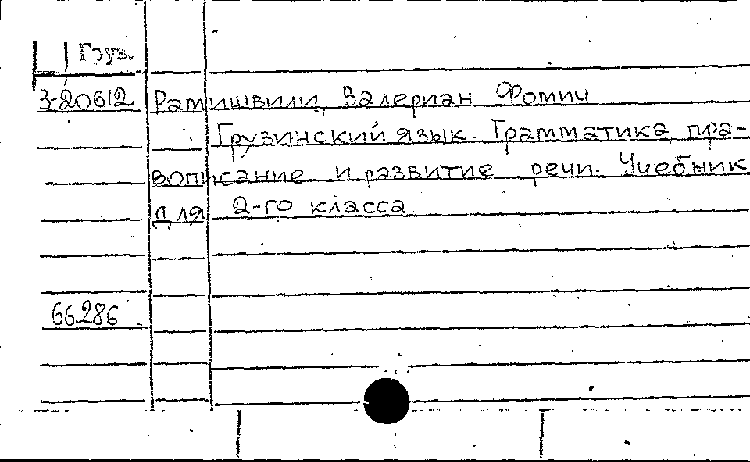 Груз.
3-20612 Рамишвили, Валериан Фомич
Грузинский язык. Грамматика, пра-
вописание и развитие речи. Учебник
для 2-го класса
66286